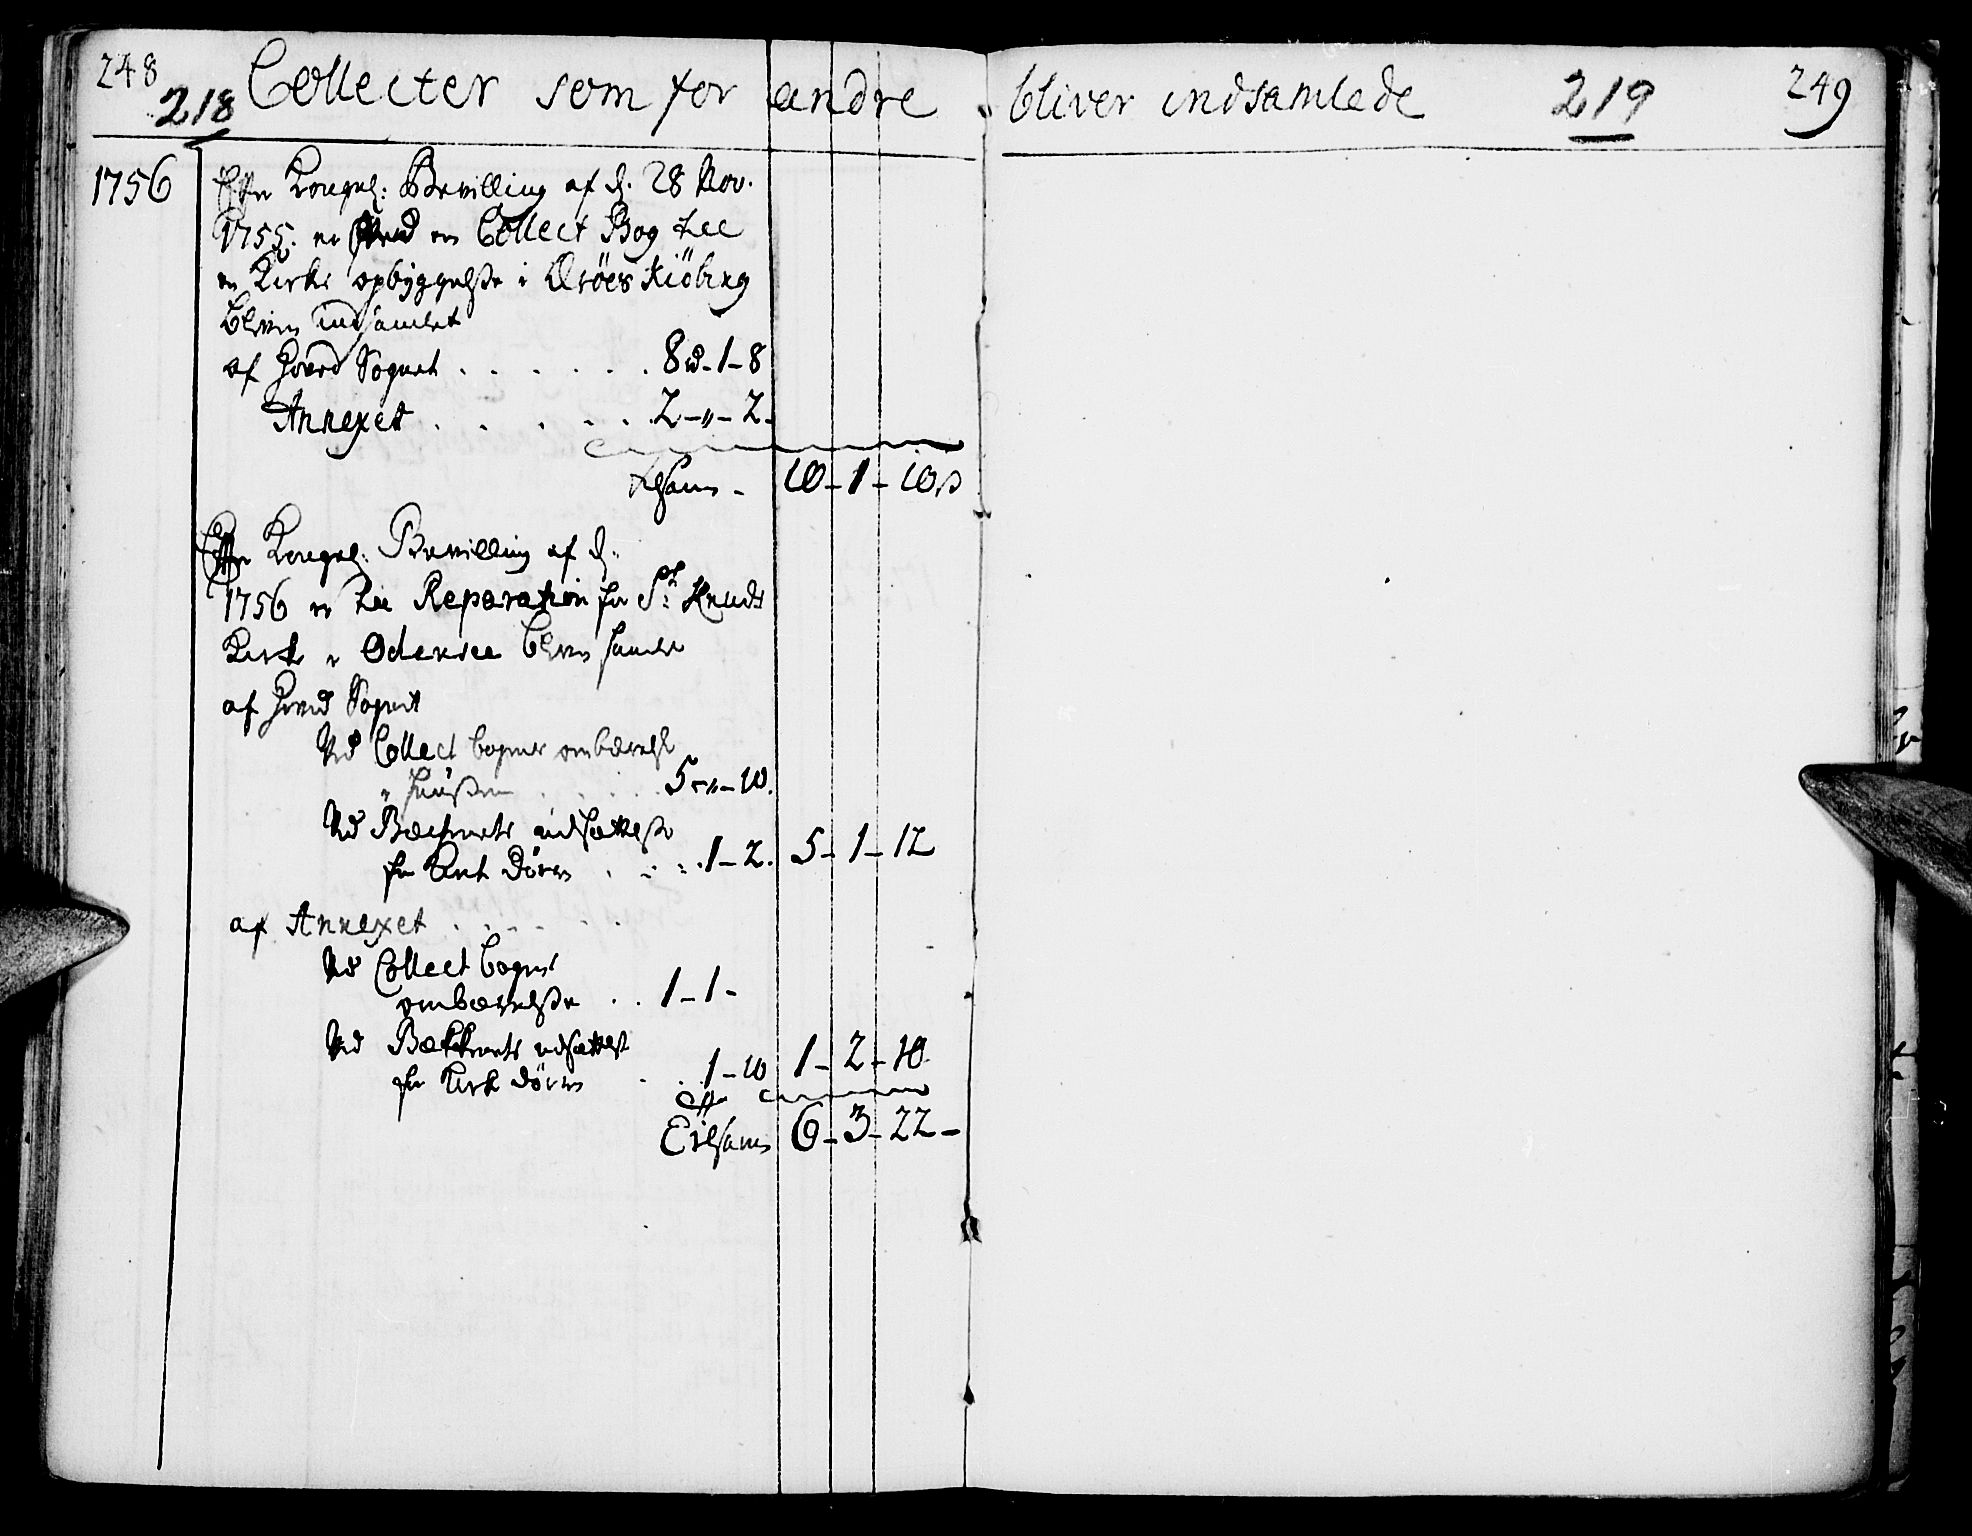 248
218 Collecter som for andre bliver indsamlede 219 249
1756
Efter Kongel: Bevilling af d. 28 Nov.
1755. er ved en Collect Bog til
en Kirkes opbyggelse i Æröes Kiöbing
bleven indsamlet
af Hoved Sognet . . . . . . 8 rd - 1 - 8
Annexet . . . . . 2 - " - 2 -
tilsam - 10 - 1 - 10 ß
Efter Kongel: Bevilling af d.
1756 er til Reparation for St: Knuds
Kirke i Odensee bleven samlet
af Hoved Sognet
Ved Collect bogens ombærelse
i Huüsene . . . . 5 - " - 10.
Ved Bæchenets udsættelse
for Kirke Dören . . . . 1 - 2. 5 - 1 - 12
af Annexet . . . . . .
Ved Collect bogens
ombærelse . . 1 - 1 -
Ved Bækkenets udsættelse
for Kirke Dören . . 1 - 10 1 - 2 - 10
Tilsam 6 - 3 - 22 -